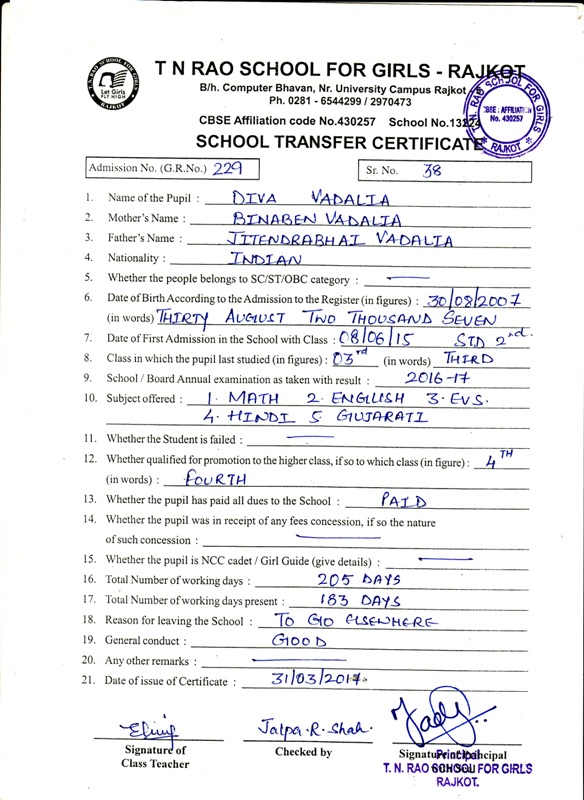 T. N. RAO SCHOOL FOR GIRLS
Let Girls
FLY HIGH
RAJKOT
T N RAO SCHOOL FOR GIRLS - RAJKOT
B/h. Computer Bhavan, Nr. University Campus Rajkot
Ph. 0281 - 6544299 / 2970473
CBSE Affiliation code No.430257 School No.13224
T. N. RAO SCHOOL FOR GIRLS
CBSE : AFFILIATION
No. 430257
RAJKOT
SCHOOL TRANSFER CERTIFICATE
Admission No. (G.R.No.) 229 Sr. No. 38
1. Name of the Pupil : DIVA VADALIA
2. Mother's Name : BINABEN VADALIA
3. Father's Name : JITENDRABHAI VADALIA
4. Nationality : INDIAN
5. Whether the people belongs to SC/ST/OBC category : —
6. Date of Birth According to the Admission to the Register (in figures) : 30/08/2007
(in words) THIRTY AUGUST TWO THOUSAND SEVEN
7. Date of First Admission in the School with Class : 08/06/15 STD 2nd.
8. Class in which the pupil last studied (in figures) : 03rd (in words) THIRD
9. School / Board Annual examination as taken with result : 2016-17
10. Subject offered : 1. MATH 2. ENGLISH 3. EVS.
4. HINDI 5 GUJARATI
11. Whether the Student is failed : —
12. Whether qualified for promotion to the higher class, if so to which class (in figure) : 4TH
(in words) : FOURTH
13. Whether the pupil has paid all dues to the School : PAID
14. Whether the pupil was in receipt of any fees concession, if so the nature
of such concession : —
15. Whether the pupil is NCC cadet / Girl Guide (give details) : —
16. Total Number of working days : 205 DAYS
17. Total Number of working days present : 183 DAYS
18. Reason for leaving the School : TO GO ELSEWHERE
19. General conduct : GOOD
20. Any other remarks : —
21. Date of issue of Certificate : 31/03/2017
Jalpa.R.Shah.
Signature of
Class Teacher
Checked by
Signature of Principal
Principal
T. N. RAO SCHOOL FOR GIRLS
RAJKOT.